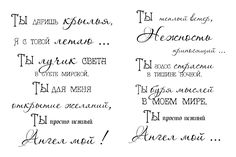 Ты даришь крылья,
я с тобой летаю ...
Ты лучик света
в суете мирской.
Ты для меня
открытие желаний,
Ты просто нежный
Ангел мой !
Ты теплый ветер,
Нежность
приносящий ...
Ты голос страсти
в тишине ночной.
Ты буря мыслей
в моем мире,
Ты просто нежный
Ангел мой ...